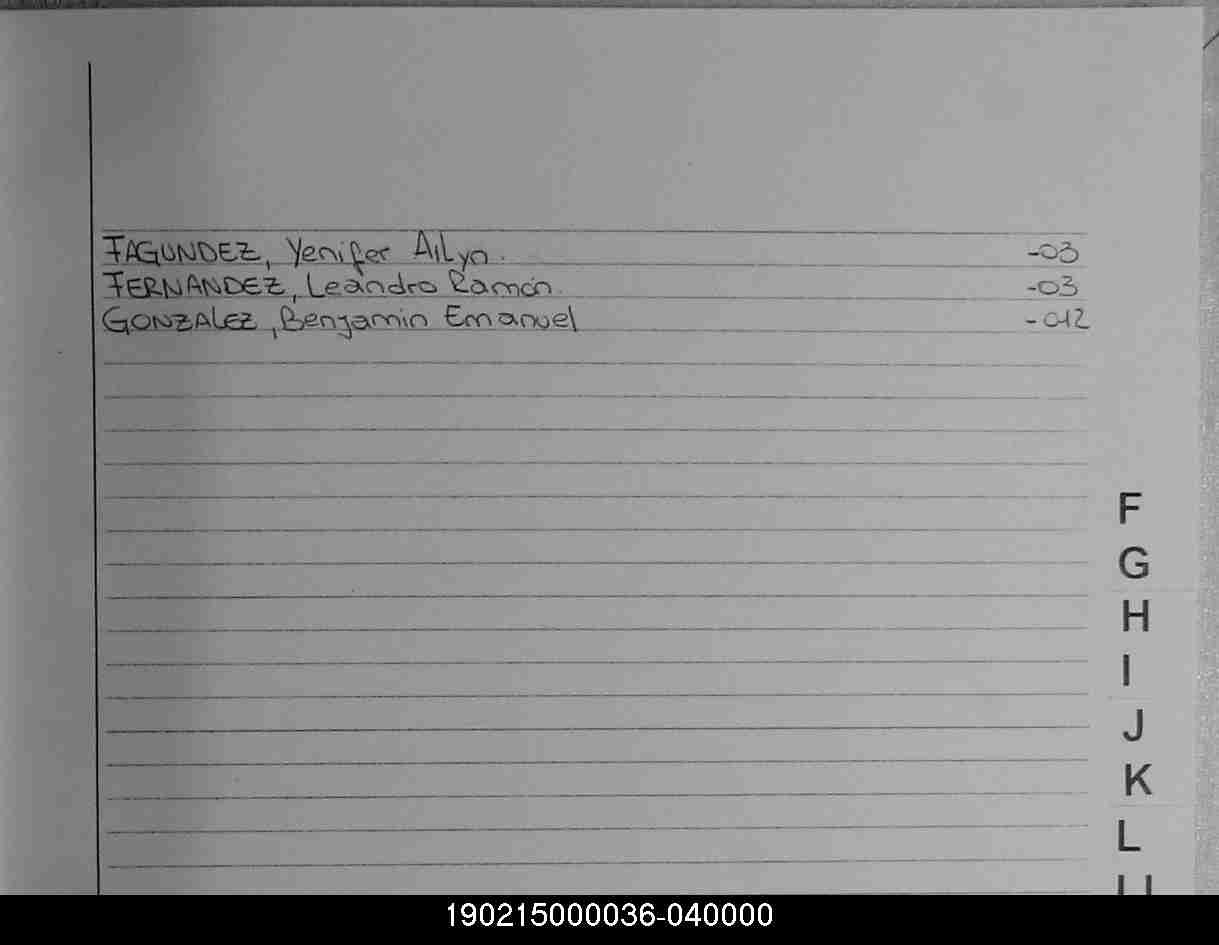 FAGUNDEZ, Yenifer Ailyn. -03
FERNANDEZ, Leandro Ramón. -03
GONZALEZ, Benjamin Emanuel -012
F
G
H
I
J
K
L
190215000036-040000